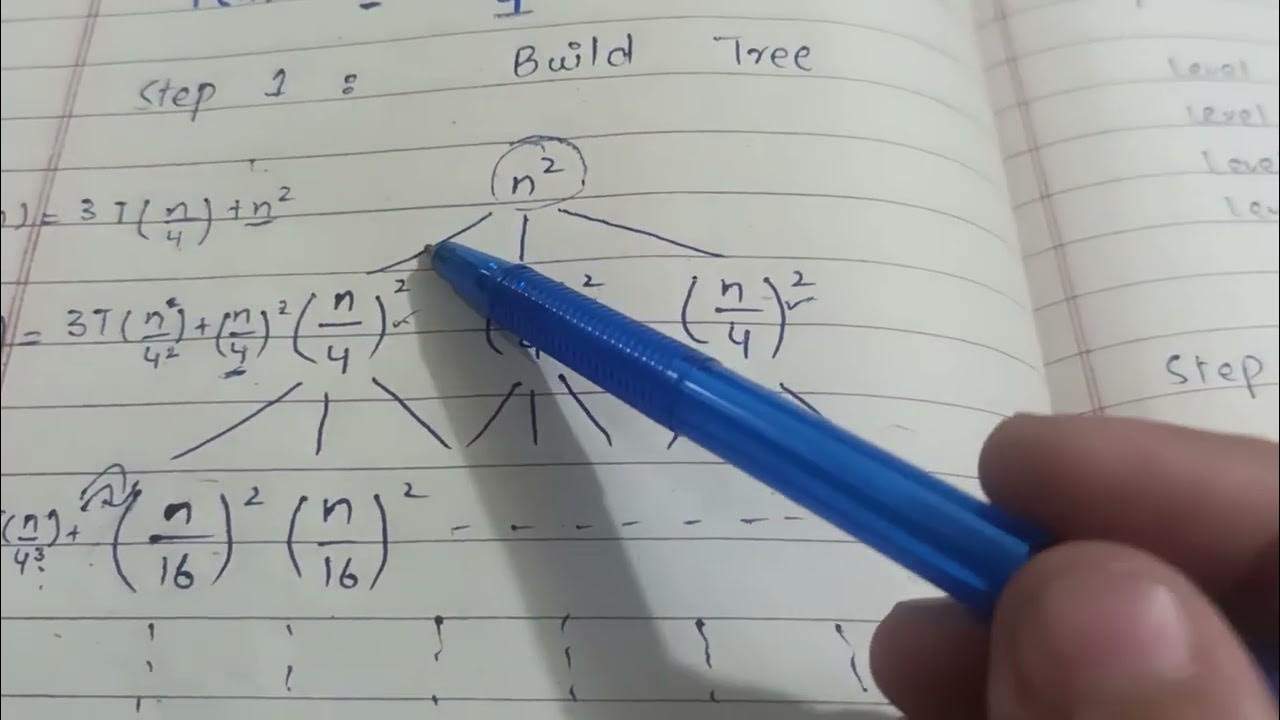 Step 1 : Build Tree
n²
) = 3T(n/4) + n²
) = 3T(n/4²) + (n/4)² (n/4)² ² (n/4)²
(n/4³) + (n/16)² (n/16)² - - - - - -
Level
Level
Leve
Lev
Step